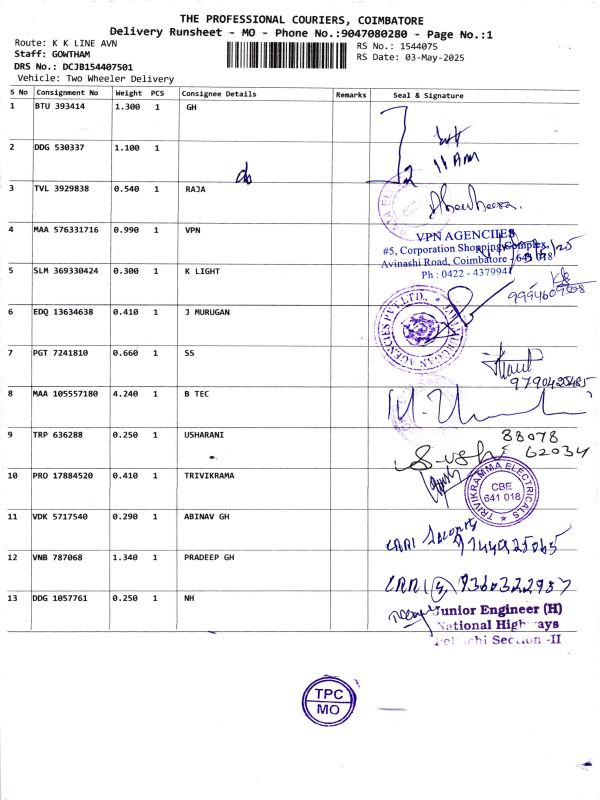 THE PROFESSIONAL COURIERS, COIMBATORE
Delivery Runsheet - MO - Phone No.:9047080280 - Page No.:1
Route: K K LINE AVN
RS No.: 1544075
Staff: GOWTHAM
RS Date: 03-May-2025
DRS No.: DCJB154407501
Vehicle: Two Wheeler Delivery
S No Consignment No Weight PCS Consignee Details Remarks Seal & Signature
1 BTU 393414 1.300 1 GH
2 DDG 530337 1.100 1
11 AM
3 TVL 3929838 0.540 1 RAJA
4 MAA 576331716 0.990 1 VPN
VPN AGENCIIES
#5, Corporation Shopping Complex,
Avinashi Road, Coimbatore - 641 018
Ph : 0422 - 4379941
5 SLM 369330424 0.300 1 K LIGHT
6 EDQ 13634638 0.410 1 J MURUGAN
7 PGT 7241810 0.660 1 SS
8 MAA 105557180 4.240 1 B TEC
9 TRP 636288 0.250 1 USHARANI
88078
62034
10 PRO 17884520 0.410 1 TRIVIKRAMA
TRIVIKRAMMA ELECTRICALS
CBE
641 018
11 VDK 5717540 0.290 1 ABINAV GH
12 VNB 787068 1.340 1 PRADEEP GH
9360322937
13 DDG 1057761 0.250 1 NH
Junior Engineer (H)
National Highways
Section -II
TPC
MO